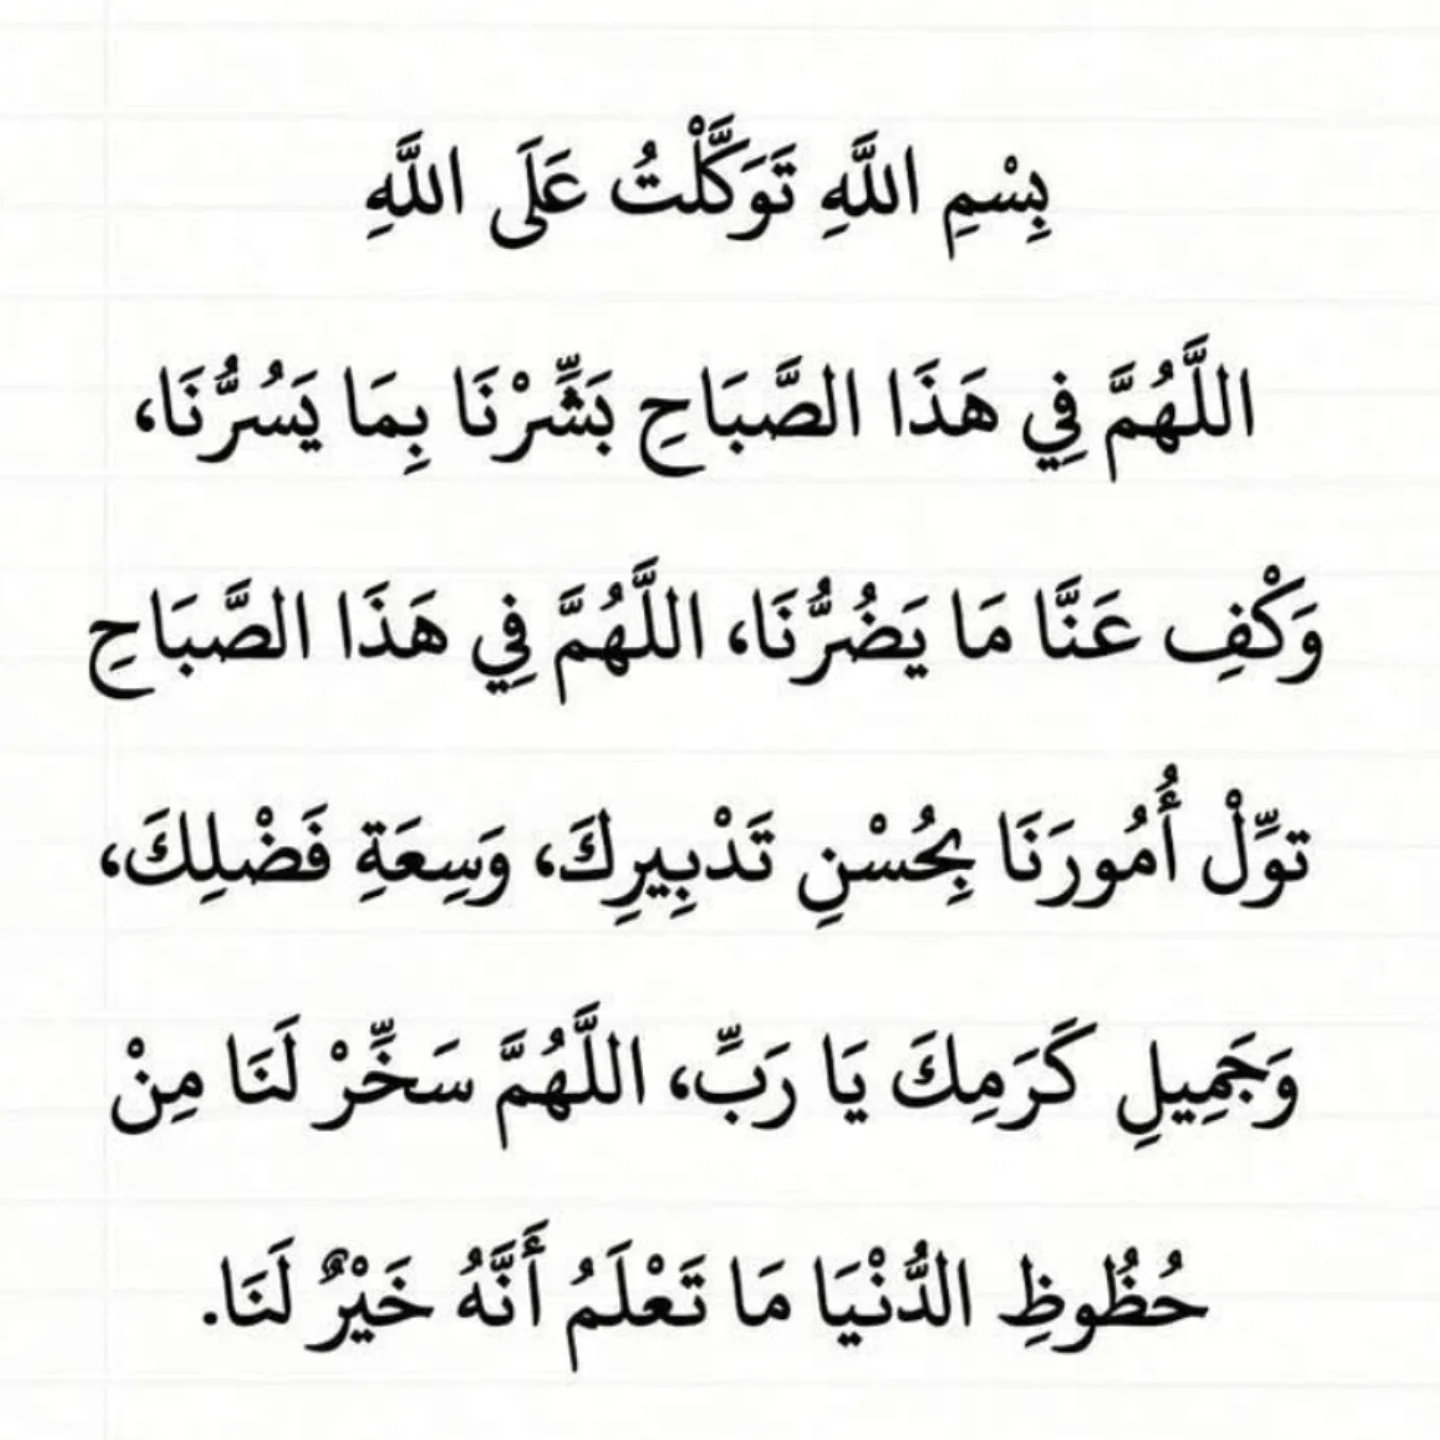 بِسْمِ اللَّهِ تَوَكَّلْتُ عَلَى اللَّهِ
اللَّهُمَّ فِي هَذَا الصَّبَاحِ بَشِّرْنَا بِمَا يَسُرُّنَا،
وَكْفِ عَنَّا مَا يَضُرُّنَا، اللَّهُمَّ فِي هَذَا الصَّبَاحِ
توِّلْ أُمُورَنَا بِحُسْنِ تَدْبِيرِكَ، وَسِعَةِ فَضْلِكَ،
وَجَمِيلِ كَرَمِكَ يَا رَبِّ، اللَّهُمَّ سَخِّرْ لَنَا مِنْ
حُظُوظِ الدُّنْيَا مَا تَعْلَمُ أَنَّهُ خَيْرٌ لَنَا.